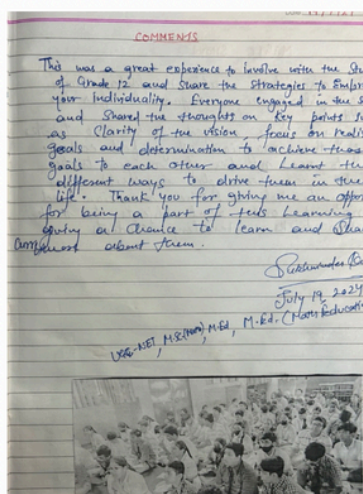 COMMENTS
This was a great experience to involve with the
of Grade 12 and share the strategies to
your individuality. Everyone engaged in the
and Shared the thoughts on key points
as Clarity of the vision, focus on
goals and determination to achieve
goals to each other and Learnt
different ways to drive them in
life. Thank you for giving me an
for being a part of this Learning
giving a chance to learn and
about them.
July 19, 2024
UGC-NET, M.Ed, M.Ed. (Maths